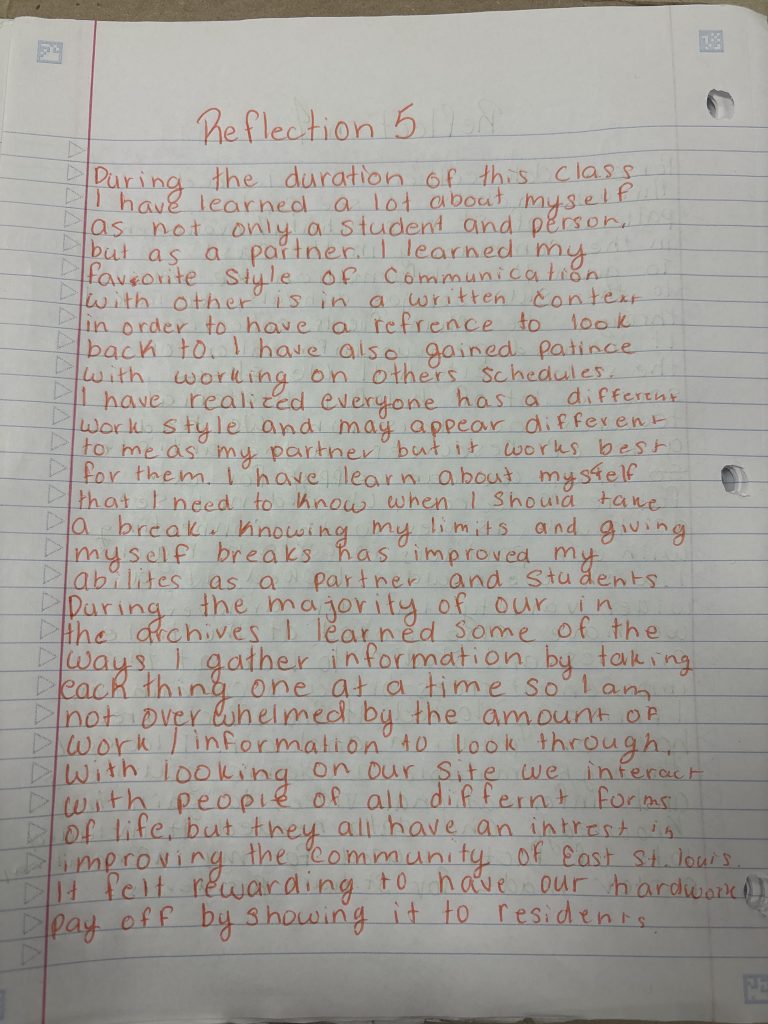 Reflection 5
During the duration of this class
I have learned a lot about myself
as not only a student and person,
but as a partner. I learned my
favorite style of communication
with other is in a written context
in order to have a refrence to look
back to. I have also gained patince
with working on others schedules.
I have realized everyone has a different
work style and may appear different
to me as my partner but it works best
for them. I have learn about myself
that I need to know when I should take
a break. Knowing my limits and giving
myself breaks has improved my
abilites as a partner and students.
During the majority of our in
the archives I learned some of the
ways I gather information by taking
each thing one at a time so I am
not overwhelmed by the amount of
work / information to look through.
With looking on our site we interact
with people of all differnt forms
of life, but they all have an intrest in
improving the community of East St. louis.
It felt rewarding to have our hardwork
pay off by showing it to residents.